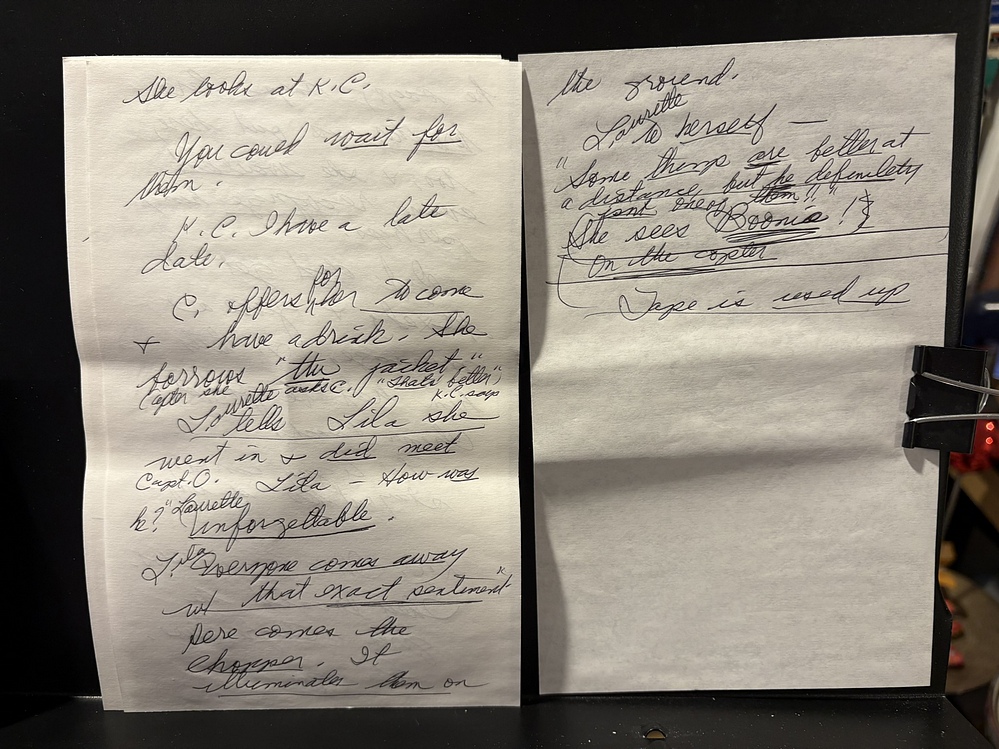 She looks at K.C.
You could wait for
them.
K.C. I have a late
date.
C. offers for her to come
+ have a drink. She
borrows "the jacket"
(after she Laurette asks C. "that's better"
K.C. says
Laurette tells Lila she
went in & did meet
Capt. O. Lila — How was
he?" Laurette
Unforgettable.
Lila Everyone comes away
w/ that exact sentiment"
Here comes the
chopper. It
illuminates them on
the ground.
Laurette to herself —
"Some things are better at
a distance but he definitely
isnt one of them!!"
(She sees Boonie!)
On the copter
Tape is used up